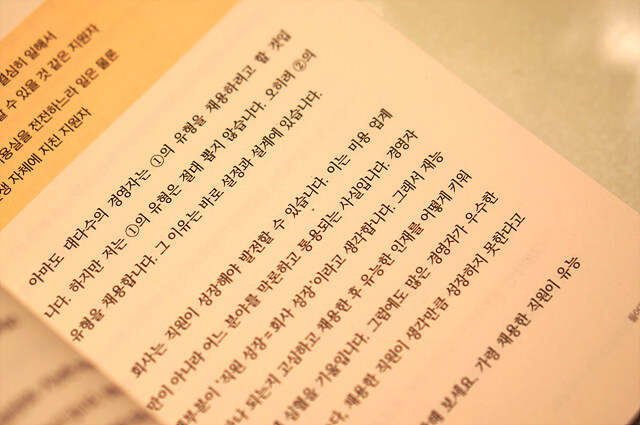 열심히 일해서
할 수 있을 것 같은 지원자
미용실을 전전하느라 일은 물론
자체에 지친 지원자
아마도 대다수의 경영자는 ①의 유형을 채용하려고 할 것입
니다. 하지만 저는 ①의 유형은 절대 뽑지 않습니다. 오히려 ②의
유형을 채용합니다. 그 이유는 바로 설정과 설계에 있습니다.
회사는 직원이 성장해야 발전할 수 있습니다. 이는 미용 업계
만이 아니라 어느 분야를 막론하고 통용되는 사실입니다. 경영자
대부분이 '직원 성장=회사 성장'이라고 생각합니다. 그래서 재능
되는지 고심하고 채용한 후 유능한 인재를 어떻게 키워
심혈을 기울입니다. 그럼에도 많은 경영자가 우수한
채용한 직원이 생각만큼 성장하지 못한다고
보세요. 가령 채용한 직원이 유능